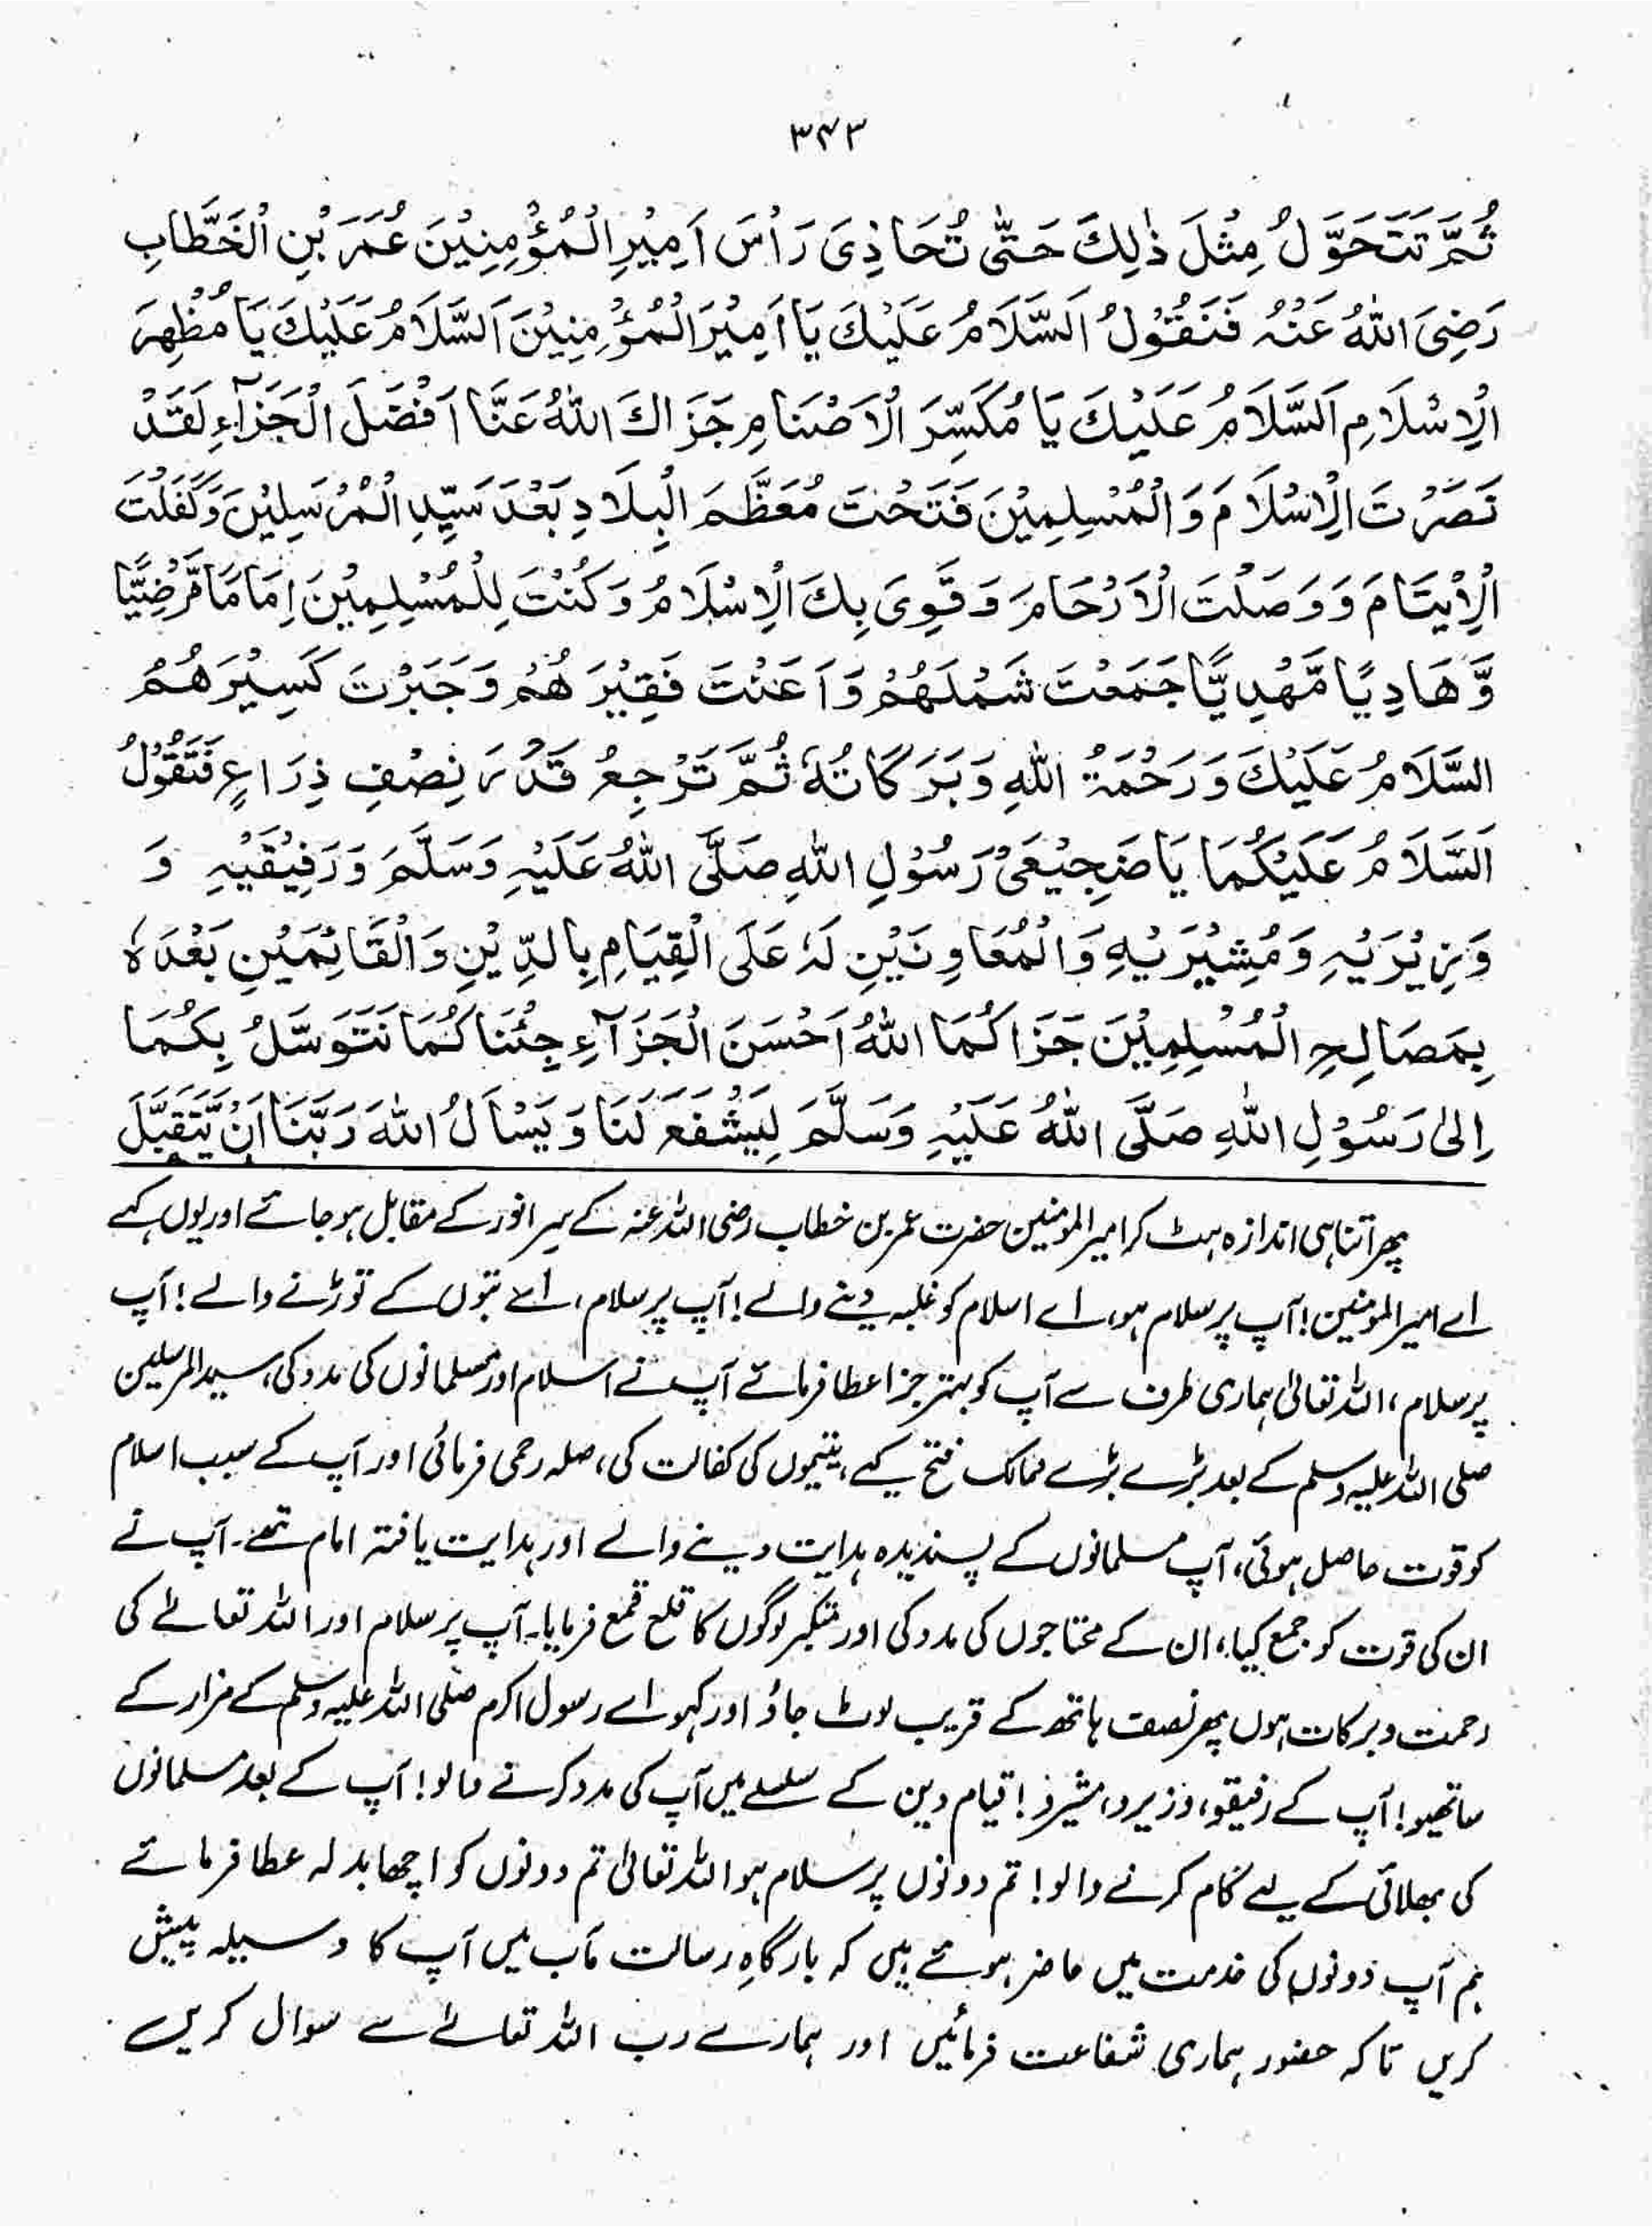 ۳۴۳
ثُمَّ تَتَحَوَّلُ مِثْلَ ذٰلِكَ حَتّٰى تُحَاذِىَ رَاْسَ اَمِيْرِ الْمُؤْمِنِيْنَ عُمَرَ بْنِ الْخَطَّابِ
رَضِىَ اللّٰهُ عَنْهُ فَتَقُوْلُ اَلسَّلَامُ عَلَيْكَ يَا اَمِيْرَ الْمُؤْمِنِيْنَ اَلسَّلَامُ عَلَيْكَ يَا مُظْهِرَ
الْاِسْلَامِ اَلسَّلَامُ عَلَيْكَ يَا مُكَسِّرَ الْاَصْنَامِ جَزَاكَ اللّٰهُ عَنَّا اَفْضَلَ الْجَزَآءِ لَقَدْ
نَصَرْتَ الْاِسْلَامَ وَالْمُسْلِمِيْنَ فَتَحْتَ مُعَظَّمَ الْبِلَادِ بَعْدَ سَيِّدِ الْمُرْسَلِيْنَ وَكَفَلْتَ
الْاَيْتَامَ وَوَصَلْتَ الْاَرْحَامَ وَقَوِىَ بِكَ الْاِسْلَامُ وَكُنْتَ لِلْمُسْلِمِيْنَ اِمَامًا مَّرْضِيًّا
وَّهَادِيًا مَّهْدِيًّا جَمَعْتَ شَمْلَهُمْ وَاَعَنْتَ فَقِيْرَهُمْ وَجَبَرْتَ كَسِيْرَهُمْ
السَّلَامُ عَلَيْكَ وَرَحْمَةُ اللّٰهِ وَبَرَكَاتُهٗ ثُمَّ تَرْجِعُ قَدْرَ نِصْفِ ذِرَاعٍ فَتَقُوْلُ
اَلسَّلَامُ عَلَيْكُمَا يَا ضَجِيْعَىْ رَسُوْلِ اللّٰهِ صَلَّى اللّٰهُ عَلَيْهِ وَسَلَّمَ وَرَفِيْقَيْهِ وَ
وَزِيْرَيْهِ وَمُشِيْرَيْهِ وَالْمُعَاوِنَيْنِ لَهٗ عَلَى الْقِيَامِ بِالدِّيْنِ وَالْقَائِمَيْنِ بَعْدَهٗ
بِمَصَالِحِ الْمُسْلِمِيْنَ جَزَاكُمَا اللّٰهُ اَحْسَنَ الْجَزَآءِ جِئْنَاكُمَا نَتَوَسَّلُ بِكُمَا
اِلٰى رَسُوْلِ اللّٰهِ صَلَّى اللّٰهُ عَلَيْهِ وَسَلَّمَ لِيَشْفَعَ لَنَا وَيَسْاَلُ اللّٰهَ رَبَّنَا اَنْ يَّتَقَبَّلَ
پھر اتنا ہی اندازہ ہٹ کر امیر المومنین حضرت عمر بن خطاب رضی اللہ عنہ کے سر انور کے مقابل ہو جائے اور یوں کہے
اے امیر المومنین! آپ پر سلام ہو، اے اسلام کو غلبہ دینے والے! آپ پر سلام، اے بتوں کے توڑنے والے! آپ
پر سلام، اللہ تعالیٰ ہماری طرف سے آپ کو بہتر جزا عطا فرمائے آپ نے اسلام اور مسلمانوں کی مدد کی، سید المرسلین
صلی اللہ علیہ وسلم کے بعد بڑے بڑے ممالک فتح کیے، یتیموں کی کفالت کی، صلہ رحمی فرمائی اور آپ کے سبب اسلام
کو قوت حاصل ہوئی، آپ مسلمانوں کے پسندیدہ ہدایت دینے والے اور ہدایت یافتہ امام تھے۔ آپ نے
ان کی قوت کو جمع کیا، ان کے محتاجوں کی مدد کی اور متکبر لوگوں کا قلع قمع فرمایا۔ آپ پر سلام اور اللہ تعالےٰ کی
رحمت و برکات ہوں پھر نصف ہاتھ کے قریب لوٹ جاؤ اور کہو اے رسول اکرم صلی اللہ علیہ وسلم کے مزار کے
ساتھیو! آپ کے رفیقو، وزیرو، مشیرو! قیام دین کے سلسلے میں آپ کی مدد کرنے والو! آپ کے بعد مسلمانوں
کی بھلائی کے لیے کام کرنے والو! تم دونوں پر سلام ہو اللہ تعالیٰ تم دونوں کو اچھا بدلہ عطا فرمائے
ہم آپ دونوں کی خدمت میں حاضر ہوئے ہیں کہ بارگاہِ رسالت مآب میں آپ کا وسیلہ پیش
کریں تاکہ حضور ہماری شفاعت فرمائیں اور ہمارے رب اللہ تعالےٰ سے سوال کریں